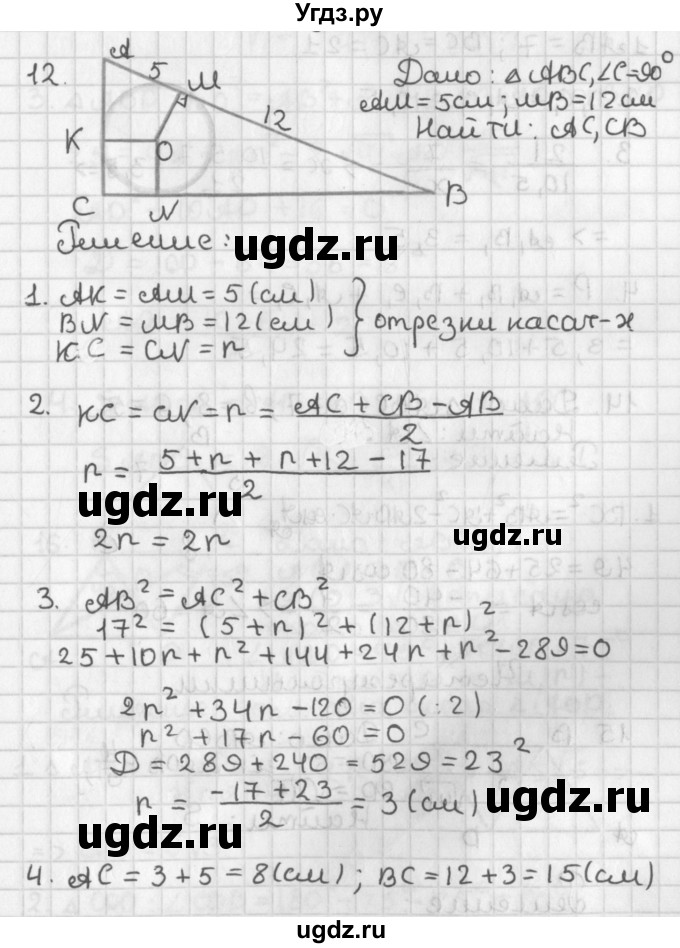 Угдз.ру
12.
A
5
M
12
K
O
C
N
B
Дано: △ABC, ∠C=90°
AM=5см; MB=12см
Найти: AC, CB
Решение:
ugdz.ru
1. AK = AM = 5 (см)
BN = MB = 12 (см) } отрезки касат-х
KC = CN = r
2. KC = CN = r = (AC + CB - AB)/2
r = (5 + r + r + 12 - 17)/2
ugdz.ru
ugdz.ru
2r = 2r
3. AB² = AC² + CB²
17² = (5+r)² + (12+r)²
25+10r+r²+144+24r+r²-289=0
2r² + 34r - 120 = 0 (:2)
r² + 17r - 60 = 0
D = 289 + 240 = 529 = 23²
r = (-17+23)/2 = 3 (см)
ugdz.ru
ugdz.ru
4. AC = 3 + 5 = 8 (см); BC = 12 + 3 = 15 (см)
ugdz.ru